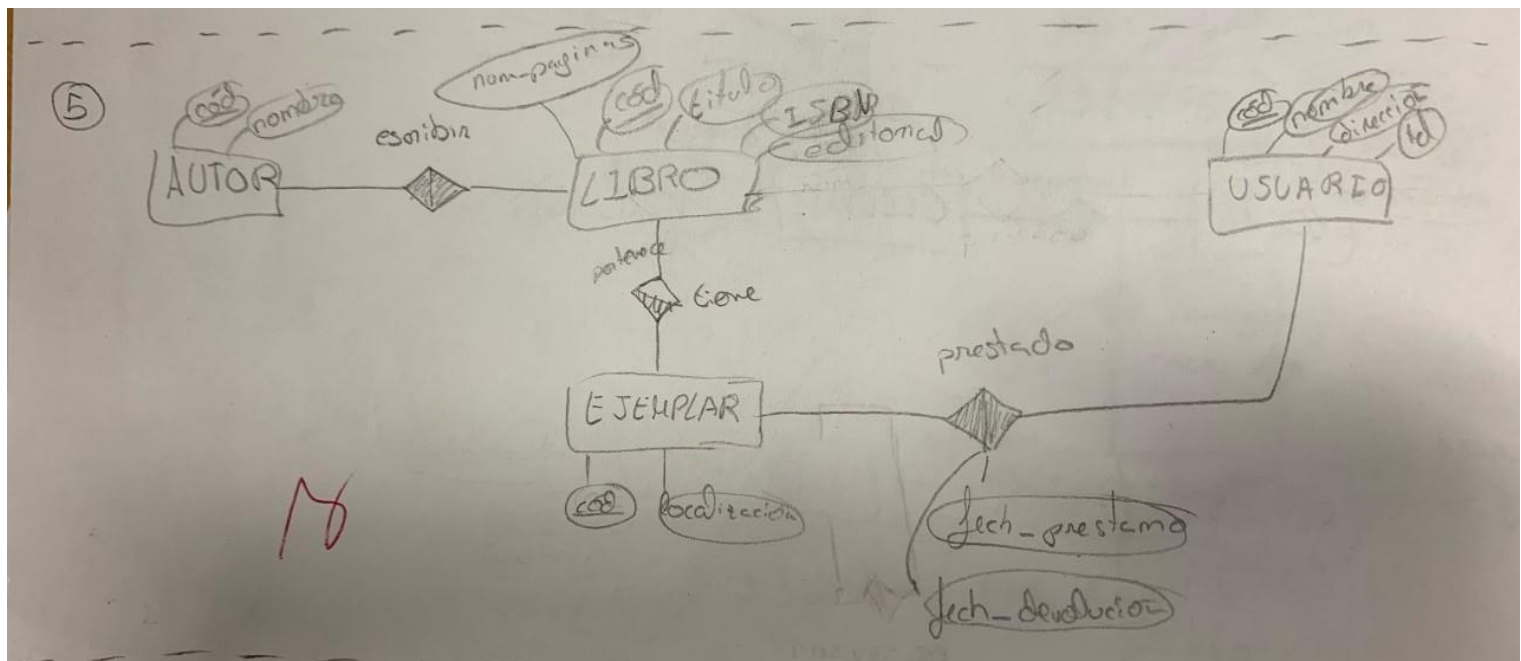 5
cód
nombre
escribir
AUTOR
nom_paginas
cód
titulo
ISBN
editorial
LIBRO
cód
nombre
direccion
tel
USUARIO
pertenece
tiene
EJEMPLAR
cod
localización
prestado
fech_prestamo
fech_devolucion